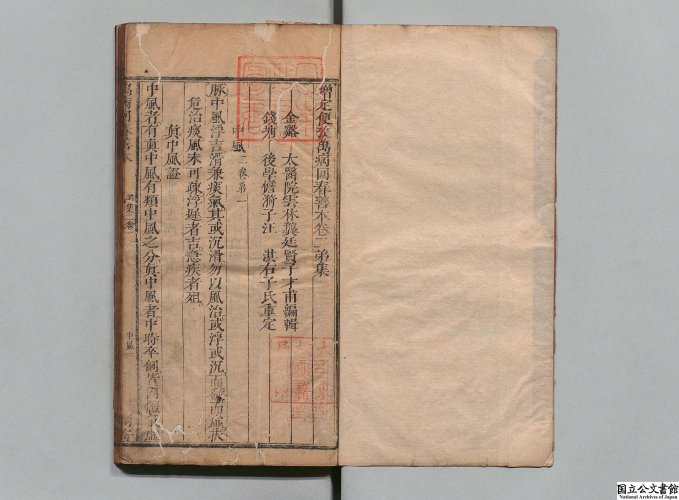 增定便攷萬病回春善本卷二第集
金谿 太醫院雲林龔廷賢子才甫編輯
錢塘 後學詹漪子汪淇右子氏重定
中風 二卷第一
脉中風浮吉滑兼痰氣其或沉滑勿以風治或浮或沉而微而虛扶
危治痰風未可疎浮遲者吉急疾者殂
真中風證
中風者有真中風有類中風之分真中風者中時卒倒皆因體氣虛
中風
国立公文書館
National Archives of Japan